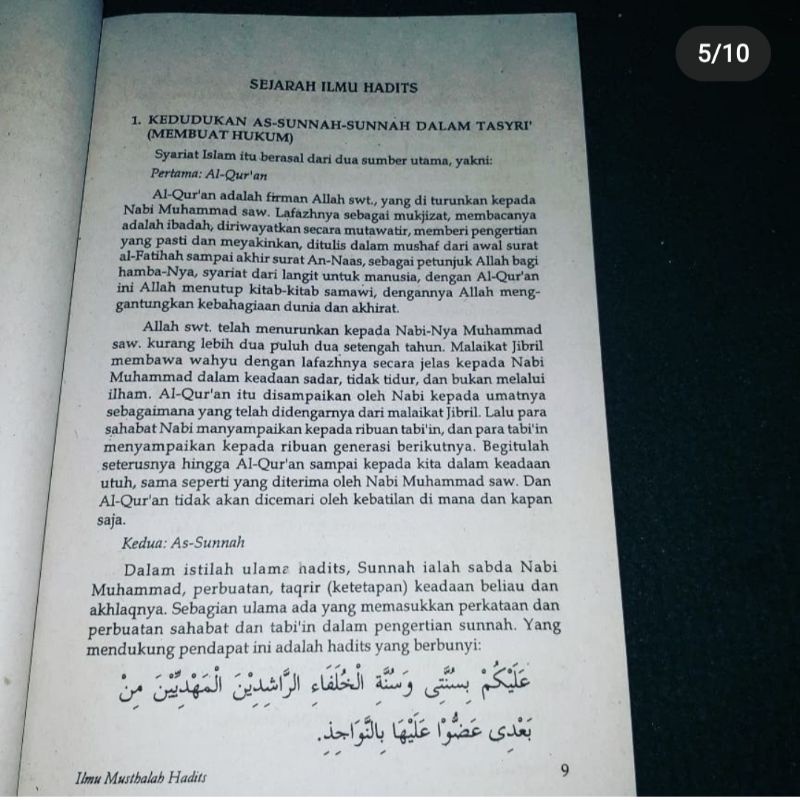 5/10
SEJARAH ILMU HADITS
1. KEDUDUKAN AS-SUNNAH-SUNNAH DALAM TASYRI'
(MEMBUAT HUKUM)
Syariat Islam itu berasal dari dua sumber utama, yakni:
Pertama: Al-Qur'an
Al-Qur'an adalah firman Allah swt., yang di turunkan kepada
Nabi Muhammad saw. Lafazhnya sebagai mukjizat, membacanya
adalah ibadah, diriwayatkan secara mutawatir, memberi pengertian
yang pasti dan meyakinkan, ditulis dalam mushaf dari awal surat
al-Fatihah sampai akhir surat An-Naas, sebagai petunjuk Allah bagi
hamba-Nya, syariat dari langit untuk manusia, dengan Al-Qur'an
ini Allah menutup kitab-kitab samawi, dengannya Allah meng-
gantungkan kebahagiaan dunia dan akhirat.
Allah swt. telah menurunkan kepada Nabi-Nya Muhammad
saw. kurang lebih dua puluh dua setengah tahun. Malaikat Jibril
membawa wahyu dengan lafazhnya secara jelas kepada Nabi
Muhammad dalam keadaan sadar, tidak tidur, dan bukan melalui
ilham. Al-Qur'an itu disampaikan oleh Nabi kepada umatnya
sebagaimana yang telah didengarnya dari malaikat Jibril. Lalu para
sahabat Nabi manyampaikan kepada ribuan tabi'in, dan para tabi'in
menyampaikan kepada ribuan generasi berikutnya. Begitulah
seterusnya hingga Al-Qur'an sampai kepada kita dalam keadaan
utuh, sama seperti yang diterima oleh Nabi Muhammad saw. Dan
Al-Qur'an tidak akan dicemari oleh kebatilan di mana dan kapan
saja.
Kedua: As-Sunnah
Dalam istilah ulama hadits, Sunnah ialah sabda Nabi
Muhammad, perbuatan, taqrir (ketetapan) keadaan beliau dan
akhlaqnya. Sebagian ulama ada yang memasukkan perkataan dan
perbuatan sahabat dan tabi'in dalam pengertian sunnah. Yang
mendukung pendapat ini adalah hadits yang berbunyi:
عَلَيْكُمْ بِسُنَّتِى وَسُنَّةِ الْخُلَفَاءِ الرَّاشِدِيْنَ الْمَهْدِيِّيْنَ مِنْ
بَعْدِى عَضُّوْا عَلَيْهَا بِالنَّوَاجِذِ.
Ilmu Musthalah Hadits
9